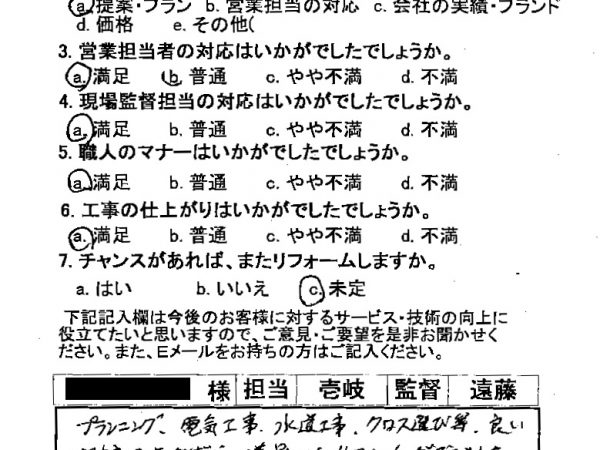 a. 提案・プラン b. 営業担当の対応 c. 会社の実績・ブランド
d. 価格 e. その他(
3. 営業担当者の対応はいかがでしたでしょうか。
a. 満足 b. 普通 c. やや不満 d. 不満
4. 現場監督担当の対応はいかがでしたでしょうか。
a. 満足 b. 普通 c. やや不満 d. 不満
5. 職人のマナーはいかがでしたでしょうか。
a. 満足 b. 普通 c. やや不満 d. 不満
6. 工事の仕上がりはいかがでしたでしょうか。
a. 満足 b. 普通 c. やや不満 d. 不満
7. チャンスがあれば、またリフォームしますか。
a. はい b. いいえ c. 未定
下記記入欄は今後のお客様に対するサービス・技術の向上に
役立てたいと思いますので、ご意見・ご要望を是非お聞かせく
ださい。また、Eメールをお持ちの方はご記入ください。
様 担当 壱岐 監督 遠藤
プランニング、電気工事、水道工事、クロス選び等、良い